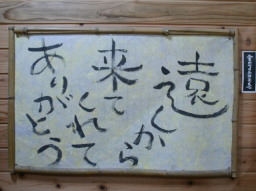 遠くから
来てくれて
ありがとう